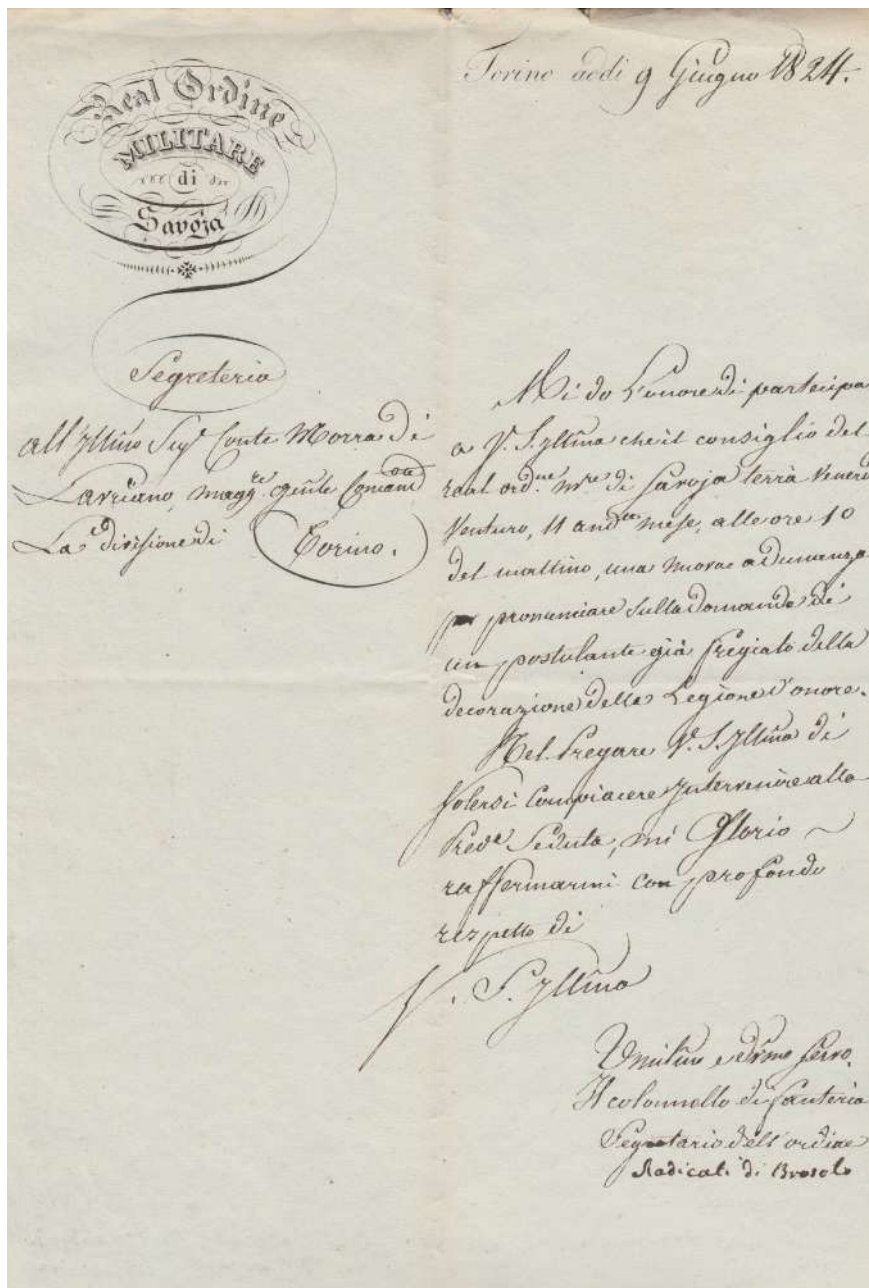 Real Ordine
MILITARE
di
Savoja
Torino addi 9 Giugno 1824.
Segreteria
all'Jllmo Sigr Conte Morra di
Lavriano, maggre genle Comandte
La divisione di Torino.
Mi do L'onore di partecipa
a V. S. Jllma che il consiglio del
real ordne mre di Savoja terrà Venerdì
Venturo, 11 andte mese, alle ore 10
del mattino, una nuova adunanza
per pronunciare sulla domanda di
un postulante già fregiato della
decorazione della Legione d'onore.
Nel Pregare V. S. Jllma di
Volersi Compiacere Jntervenire alla
Preda Seduta, mi Glorio
raffermarmi con profondo
rispetto di
V. S. Jllma
Umilmo e Devmo Servo.
Il colonnello di fanteria
Segretario dell'ordine
Radicati di Brosolo